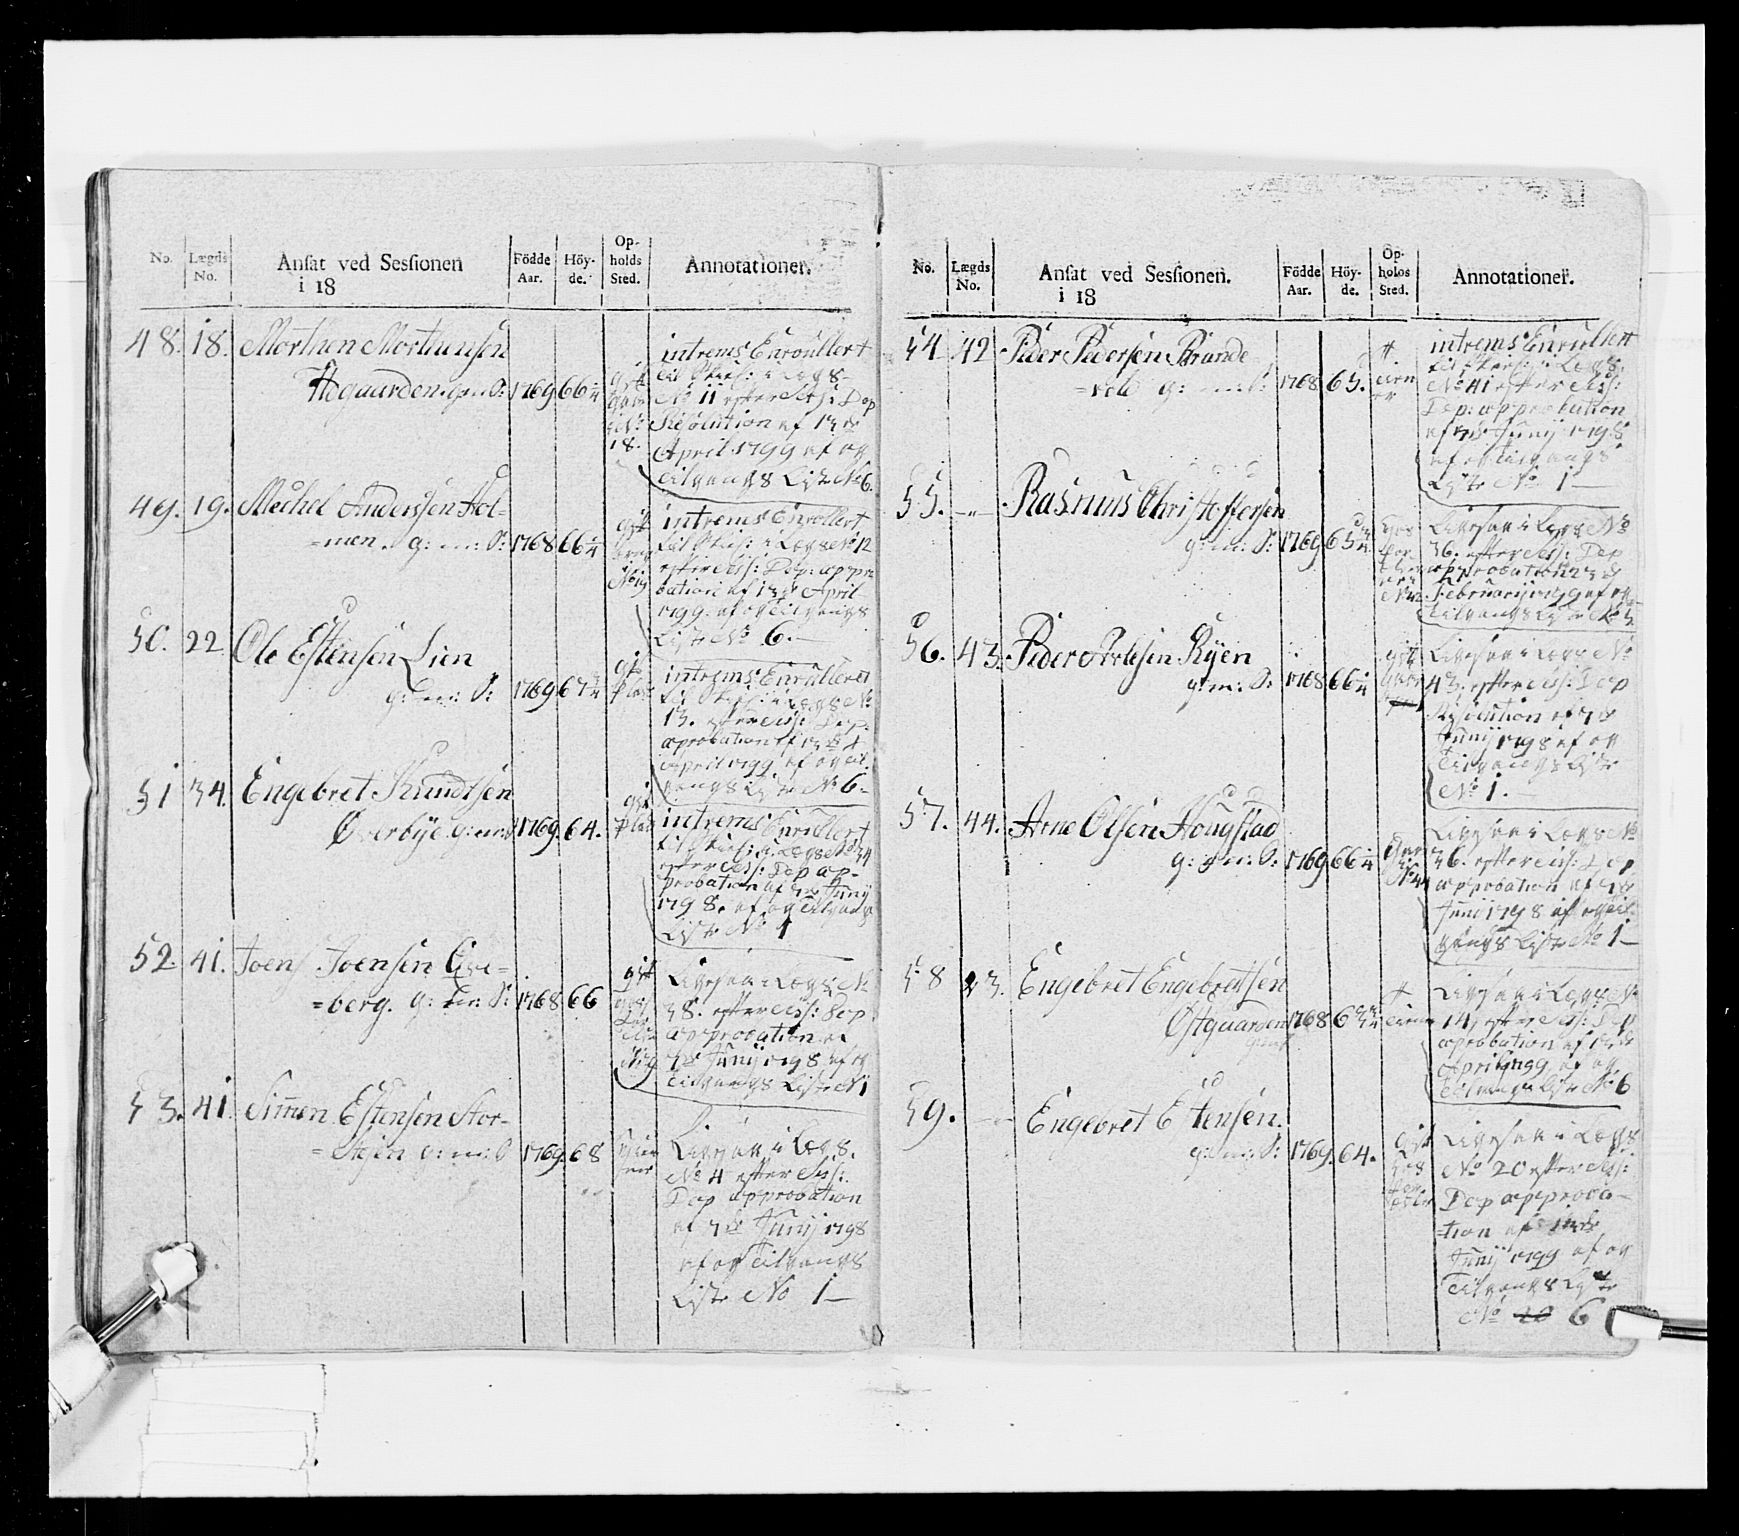 No. Lægds No. Ansat ved Sessionen i 18 Födde Aar. Höy-de. Op-holds Sted. Annotationer.
48. 18. Morthen Morthensen
Hogaarden. g: m: S: 1769 66 1/4
intrems Enroullert
til Skif: i Legs
No 11 efter Sess: Dep
Resolution af 13de
April 1799 af og
tilgangs Liste No 6.
49. 19. Mechel Anderssen Hol-
=men. g: m: S: 1768 66 1/4
intrems Enrollert
til Skif: i Legs No 12
efter Sess: Dep: appro
bation af 13de April
1799. af og tilgangs
Liste No 6.
50. 22 Ole Estensen Lien
g: m: S: 1769 67
intrems Enrulleret
til Skif: i Legs No
13. efter Sess: Dep:
aprobation af 13de
April 1799 af og til
gangs Liste No 6
51 34. Engebret Knudtsen
Øverbye g: m: S 1769. 64.
gift
Plads
intrems Enrullert
til Skif: i Legs No 34
efter Sess: Dep ap-
probation af 7de Junij
1798. af og tilgangs
Liste No 1
52. 41. Joen Joensen
=berg. g: m: S: 1768 66
gift
Ligesaa i Legs No
38. efter Sess: Dep
approbation af
7de Junij 1798 af og
tilgangs Liste No 1
53. 41. Simen Estensen Stor-
=stejen g: m: S 1769. 68
Ligesaa i Legs.
No 4 efter Sess:
Dep approbation
af 7de Junij 1798
af og tilgangs
Liste No 1
No. Lægds No. Ansat ved Sessionen. i 18 Födde Aar. Höy-de. Op-holds Sted. Annotationer.
54 42 Peder Pedersen Brande
=vold g: m: S: 1768 65.
intrems Enrullert
til Skif: i Legs.
No 41 efter Sess:
Dep: approbation
af 7de Junij 1798
af og tilgangs
Liste No 1
55. -"- Rasmus Christoffersen
g: m: S: 1769 65
Ligesaa i Legs No
36. efter Sess: Dep
approbation
Februarij 1799 af og
tilgangs Liste No 5
56. 43. Peder Arlesen Ryen
g: m: S: 1768 66 1/4
gift
Ligesaa i Legs No
43. efter Sess: Dep
Resolution af 7de
Junij 1798 af og
tilgangs Liste
No 1.
57. 44. Arne Olsen Hougstad
g: m: S: 1769 66 1/4
Ligesaa i Legs No
36. efter Sess: Dep
approbation af 7de
Junij 1798 af og til
gangs Liste No 1
58 23. Engebret Engebretsen
Østgaarden 1768
Ligesaa i Legs No
14, efter Sess: Dep
aprobation af 13de
April 1799 af og
tilgangs Liste No 6
59. -"- Engebret Estensen.
g: m: S: 1769. 64.
gift
hos
Ligesaa i Legs
No 20 efter Sess:
Dep approba-
tion af 13de
Junij 1799 af og
tilgangs Liste
No 6